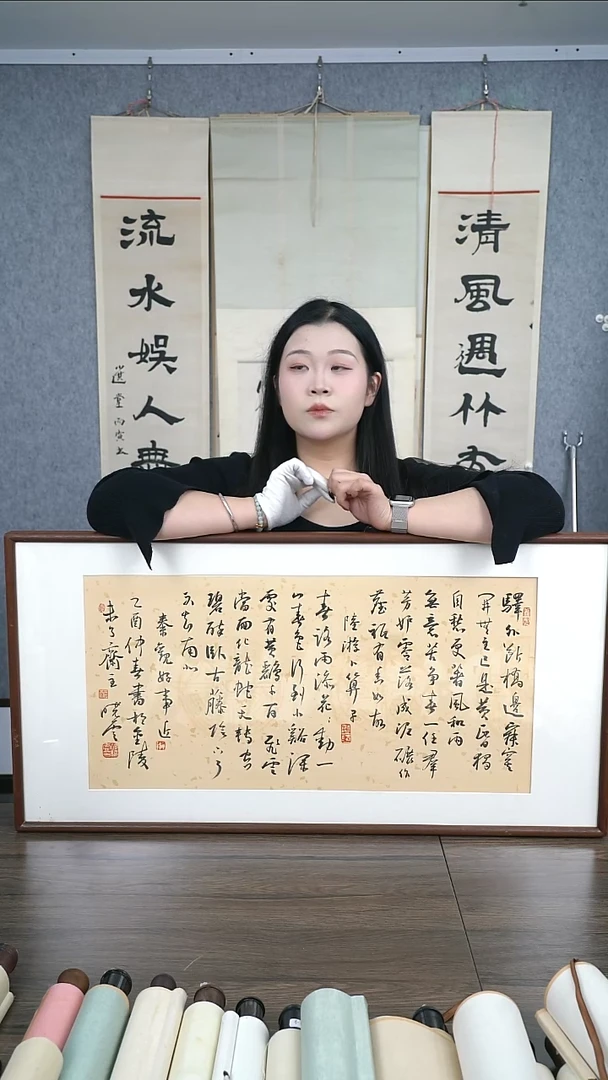 清風週竹
流水娱人無
選堂丙寅
驛外斷橋邊寂寞
開無主已是黃昏獨
自愁更著風和雨
無意苦爭春一任群
芳妒零落成泥碾作
塵祗有香如故
陸游卜算子
春路雨添花〻動一
山春色行到小谿深
處有黃鸝千百飛雲
當面化龍蛇夭轉空
碧醉臥古藤陰下了
不知南北
秦觀好事近
乙酉仲春書於金陵
未了齋主曉雲